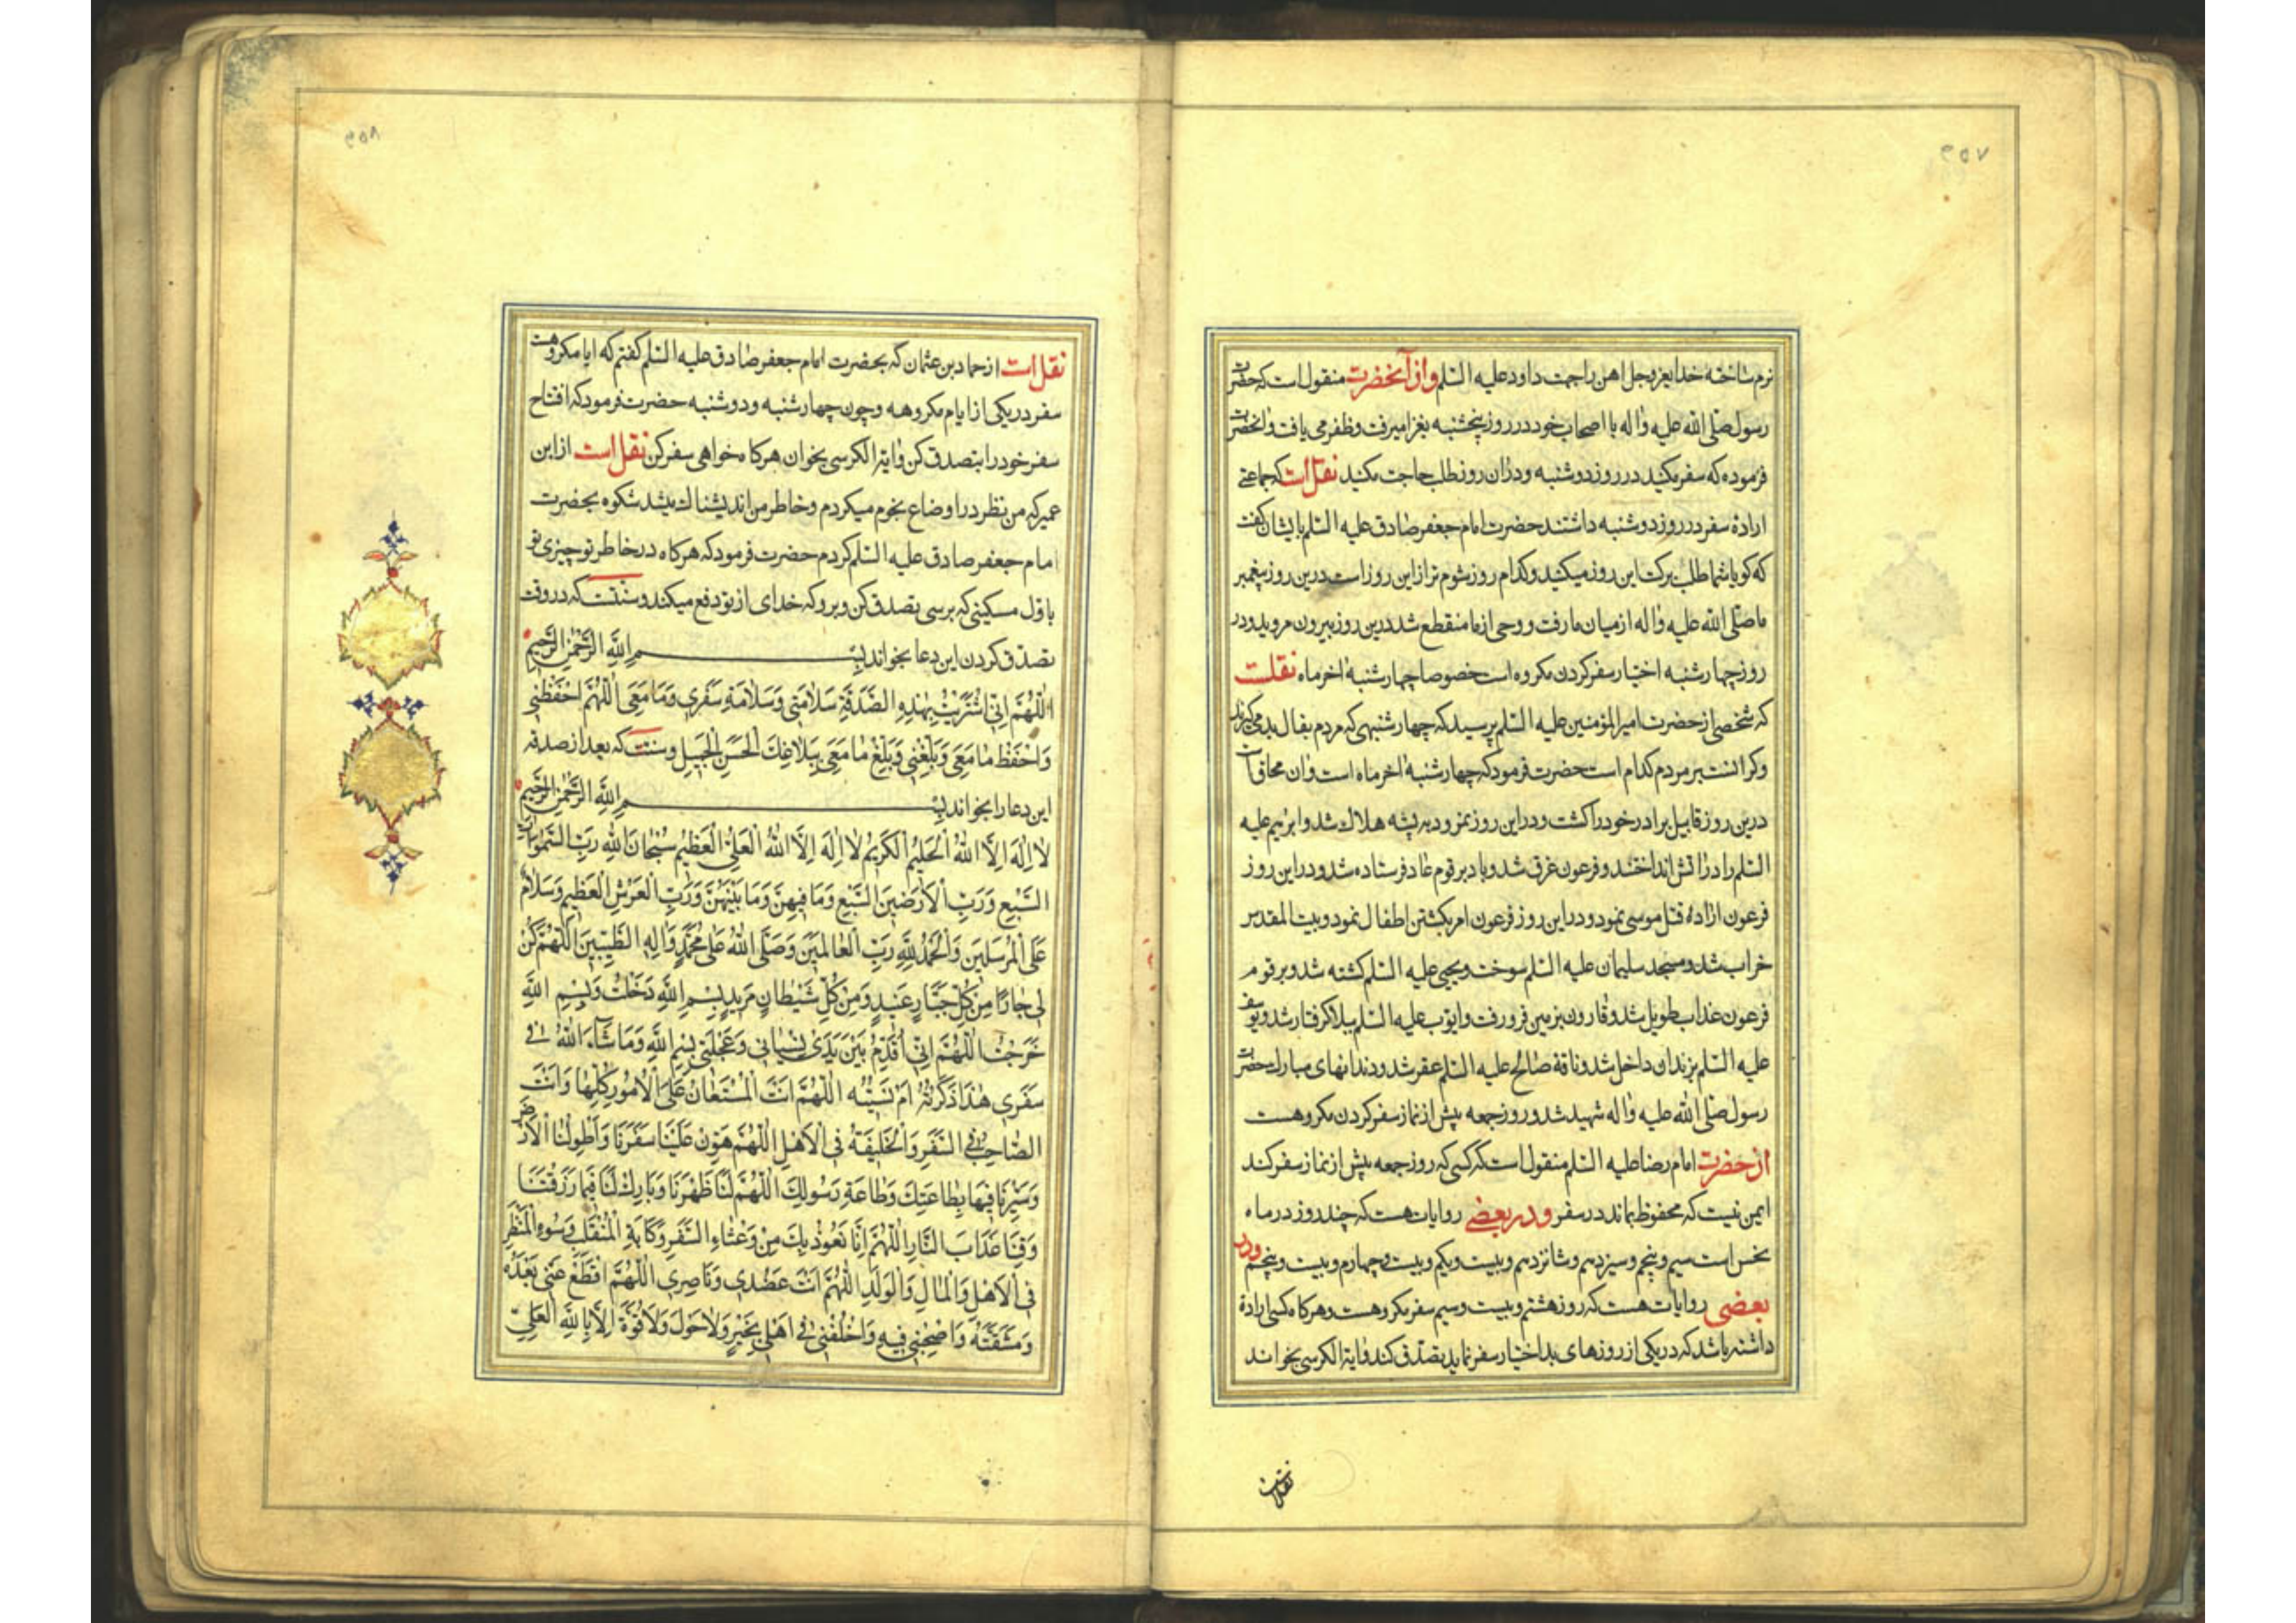 ۲۵۷
نرم ساخته خدای عز و جل اهن را جهت داود علیه السّلم وازآنحضرت منقول است که حضرت
رسول صلی الله علیه واله با اصحاب خود در روز پنجشنبه بغزا میرفت وظفر می یافت وانحضرت
فرموده که سفر مکنید در روز دوشنبه ودران روز طلب حاجت مکنید نقل است که جماعتی
ارادۀ سفر در روز دوشنبه داشتند حضرت امام جعفر صادق علیه السّلم بایشان گفت
که کویا شما طلب برکت این روز میکنید وکدام روز شوم تر از این روز است درین روز پیغمبر
ما صلّی الله علیه واله از میان ما رفت و وحی از ما منقطع شد درین روز بیرون مروید ودر
روز چهارشنبه اختیار سفر کردن مکروه است خصوصا چهارشنبۀ اخر ماه نقلست
که شخصی از حضرت امیرالمؤمنین علیه السّلم پرسید که چهارشنبهی که مردم بفال بد می کیرند
وکرانست بر مردم کدام است حضرت فرمود که چهارشنبۀ اخر ماه است وان محاق است
درین روز قابیل برادر خود را کشت ودر این روز نمرود به پشه هلاک شد وابرهیم علیه
السّلم را در اتش انداختند وفرعون غرق شد وباد بر قوم عاد فرستاده شد ودر این روز
فرعون ارادۀ قتل موسی نمود ودر این روز فرعون امر بکشتن اطفال نمود وبیت المقدس
خراب شد ومسجد سلیمان علیه السّلم سوخت ویحیی علیه السّلم کشته شد وبر قوم
فرعون عذاب طویل شد وقارون بزمین فرو رفت وایوب علیه السّلم ببلا کرفتار شد ویوسف
علیه السّلم بزندان داخل شد وناقۀ صالح علیه السّلم عقر شد ودندانهای مبارک حضرت
رسول صلی الله علیه واله شهید شد وروز جمعه پیش از نماز سفر کردن مکروهست
از حضرت امام رضا علیه السّلم منقول است که کسی که روز جمعه پیش از نماز سفر کند
ایمن نیست که محفوظ بماند در سفر ودر بعضی روایات هست که چند روز در ماه
نحس است سیم وپنجم وسیزدهم وشانزدهم وبیست ویکم وبیست وچهارم وبیست وپنجم ودر
بعضی روایات هست که روز هشتم وبیست وسیم سفر مکروهست وهرکاه کسی ارادۀ
داشته باشد که در یکی از روزهای بد اختیار سفر نماید تصدّق کند وایة الکرسی بخواند
نقلست
۲۵۸
نقل است از حماد بن عثمان که بحضرت امام جعفر صادق علیه السّلم کفتم که ایا مکروهست
سفر در یکی از ایام مکروهه وچون چهارشنبه ودوشنبه حضرت فرمود که افتتاح
سفر خود را بتصدق کن وایة الکرسی بخوان هرکاه خواهی سفر کن نقل است از ابن
عمیر که من نظر در اوضاع نجوم میکردم وخاطر من اندیشناک میشد شکوه بحضرت
امام جعفر صادق علیه السّلم کردم حضرت فرمود که هرکاه در خاطر تو چیزی بو
باوّل مسکینی که برسی تصدق کن وبرو که خدای از تو دفع میکند وسنتست که در وقت
تصدّق کردن این دعا بخواند بِسْمِ اللهِ الرَّحْمٰنِ الرَّحیمِ
اَللّٰهُمَّ اِنّی اشْتَرَیْتُ بِهٰذِهِ الصَّدَقَةِ سَلامَتی وَسَلامَةِ سَفَری وَمَا مَعِیَ اَللّٰهُمَّ احْفَظْنی
وَاحْفَظْ مٰا مَعِیَ وَبَلِّغْنی وَبَلِّغْ مٰا مَعِیَ بِبَلاغِکَ الْحَسَنِ الْجَمیلِ وسنتست که بعد از صدقه
این دعا را بخواند بِسْمِ اللهِ الرَّحْمٰنِ الرَّحیمِ
لا اِلٰهَ اِلاَّ اللهُ الْحَلیمُ الْکَریمُ لا اِلٰهَ اِلاَّ اللهُ الْعَلِیُّ الْعَظیمُ سُبْحٰانَ اللهِ رَبِّ السَّمٰوٰاتِ
السَّبْعِ وَرَبِّ الْاَرَضینَ السَّبْعِ وَمَا فیهِنَّ وَمَا بَیْنَهُنَّ وَرَبِّ الْعَرْشِ الْعَظیمِ وَسَلامٌ
عَلَی الْمُرْسَلینَ وَالْحَمْدُ لِلّٰهِ رَبِّ الْعٰالَمینَ وَصَلَّی اللهُ عَلیٰ مُحَمَّدٍ وَاٰلِهِ الطَّیِّبینَ اَللّٰهُمَّ کُنْ
لی جٰارًا مِنْ کُلِّ جَبَّارٍ عَنیدٍ وَمِنْ کُلِّ شَیْطٰانٍ مَریدٍ بِسْمِ اللهِ دَخَلْتُ وَبِسْمِ اللهِ
خَرَجْتُ اَللّٰهُمَّ اِنّی اُقَدِّمُ بَیْنَ یَدَیْ نِسْیٰانی وَعَجَلَتی بِسْمِ اللهِ وَمَا شٰآءَ اللهُ فی
سَفَری هٰذَا ذَکَرْتُهُ اَمْ نَسیتُهُ اَللّٰهُمَّ اَنْتَ الْمُسْتَعٰانُ عَلَی الْاُمُورِ کُلِّهٰا وَاَنْتَ
الصّٰاحِبُ فِی السَّفَرِ وَالْخَلیفَةُ فِی الْاَهْلِ اَللّٰهُمَّ هَوِّنْ عَلَیْنَا سَفَرَنَا وَاَطْوِلَنَا الْاَرْضَ
وَسَیِّرْنَا فیهَا بِطٰاعَتِکَ وَطٰاعَةِ رَسُولِکَ اَللّٰهُمَّ لَنَا ظَهْرَنَا وَبٰارِکْ لَنَا فیمٰا رَزَقْتَنَا
وَقِنَا عَذَابَ النَّارِ اَللّٰهُمَّ اِنَّا نَعُوذُ بِکَ مِنْ وَعْثٰاءِ السَّفَرِ وَکَابَةِ الْمُنْقَلَبِ وَسُوءِ الْمَنْظَرِ
فِی الْاَهْلِ وَالْمٰالِ وَالْوَلَدِ اَللّٰهُمَّ اَنْتَ عَضُدی وَنٰاصِری اَللّٰهُمَّ اقْطَعْ عَنّی بُعْدَهُ
وَمَشَقَّتَهُ وَاصْحَبْنی فیهِ وَاخْلُفْنی فی اَهْلی بِخَیْرٍ وَلاحَوْلَ وَلاقُوَّةَ اِلاَّ بِاللهِ الْعَلِیِّ